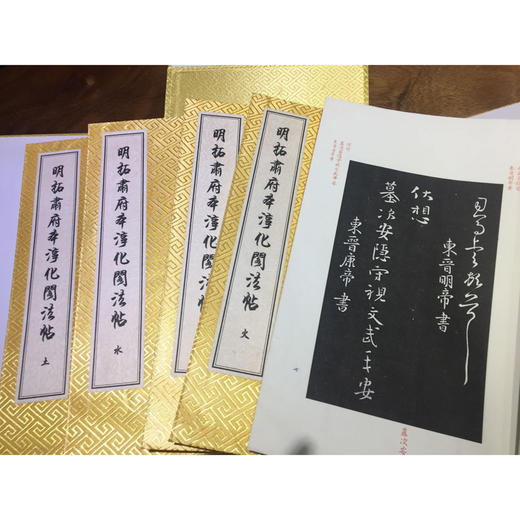 明拓肅府本淳化閣法帖
土
明拓肅府本淳化閣法帖
水
明拓肅府本淳化閣法帖
明拓肅府本淳化閣法帖
火
東晉明帝書
伏想
墓次安隱守視文武平安
東晉康帝書